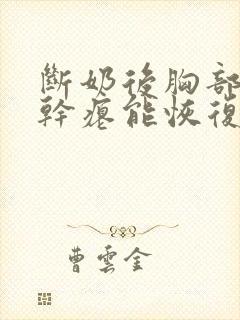 斷奶後胸部
幹癟能恢復
曹雲金